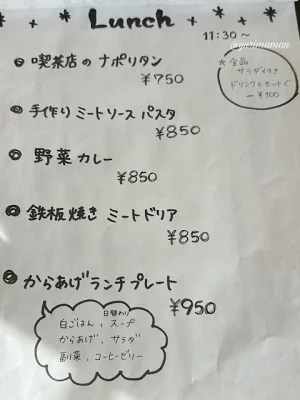 Lunch
11:30〜
喫茶店のナポリタン
¥750
☆全品
サラダ付き
ドリンクとセットで
ー¥100
手作りミートソースパスタ
¥850
野菜カレー
¥850
鉄板焼きミートドリア
¥850
からあげランチプレート
¥950
日替わり
白ごはん、スープ
からあげ、サラダ
副菜、コーヒーゼリー